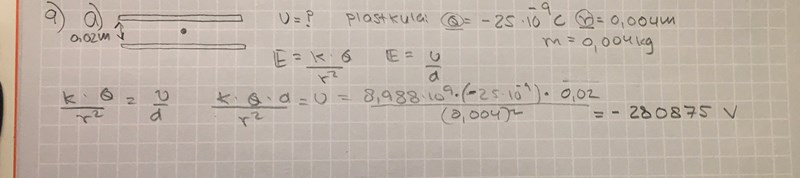 9) a) U = ? plastkula: Q = -25·10⁻⁹C r = 0,004m
0,02m m = 0,004kg
E = k·Q/r² E = U/d
k·Q/r² = U/d k·Q·d/r² = U = 8,988·10⁹·(-25·10⁻⁹)·0,02/(0,004)² = -280875 V